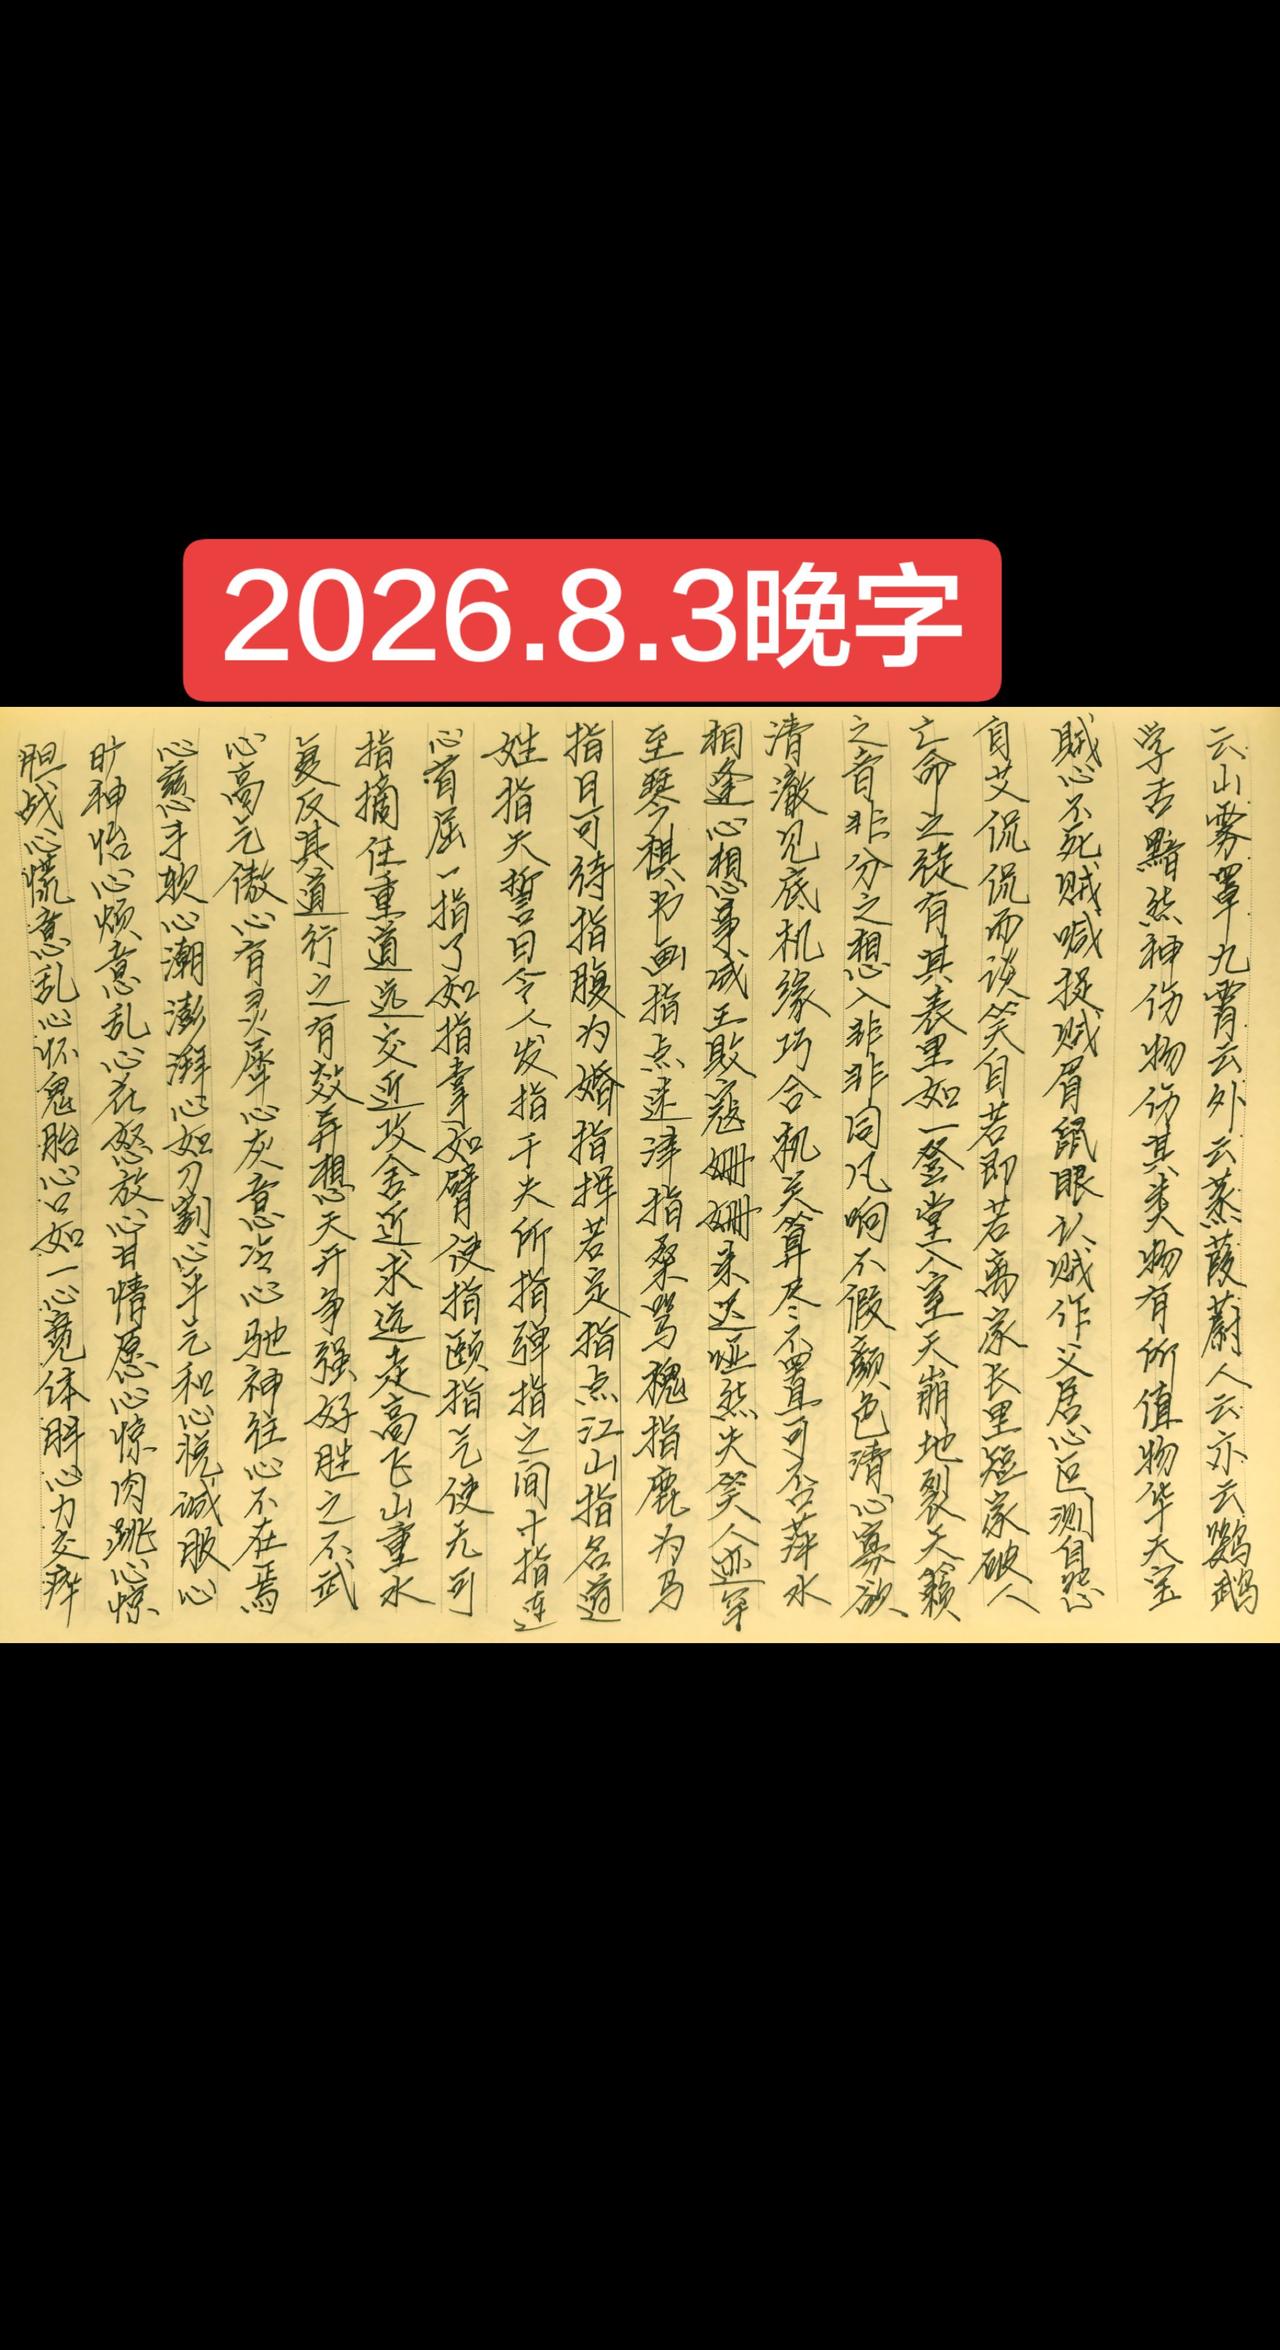 2026.8.3晚字
云山雾罩九霄云外云蒸霞蔚人云亦云鹦鹉
学舌黯然神伤物伤其类物有所值物华天宝
贼心不死贼喊捉贼眉鼠眼认贼作父居心叵测自怨
自艾侃侃而谈笑自若即若离家长里短家破人
亡命之徒有其表里如一登堂入室天崩地裂天籁
之音非分之想入非非同凡响不假颜色清心寡欲
清澈见底机缘巧合机关算尽不置可否萍水
相逢心想事成王败寇姗姗来迟哑然失笑人迹罕
至琴棋书画指点迷津指桑骂槐指鹿为马
指日可待指腹为婚指挥若定指点江山指名道
姓指天誓日令人发指千夫所指弹指之间十指连
心首屈一指了如指掌如臂使指颐指气使无可
指摘任重道远交近攻舍近求远走高飞山重水
复反其道行之有效异想天开争强好胜之不武
心高气傲心有灵犀心灰意冷心驰神往心不在焉
心慈手软心潮澎湃心如刀割心平气和心悦诚服心
旷神怡心烦意乱心花怒放心甘情愿心惊肉跳心惊
胆战心慌意乱心怀鬼胎心口如一心宽体胖心力交瘁